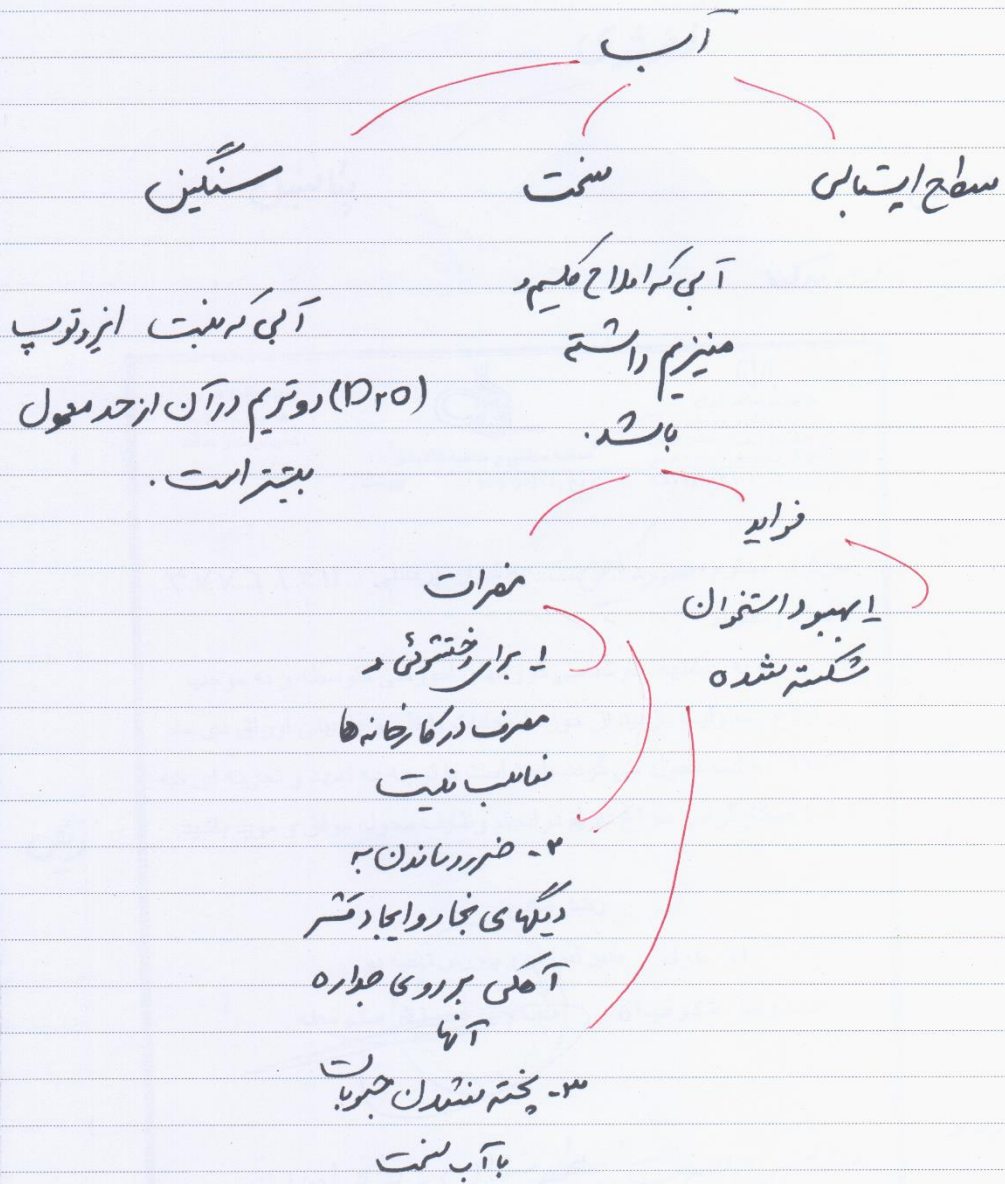 آب
سطح ایستابی
سخت
سنگین
آبی که املاح کلسیم و
منیزیم داشته
باشد.
آبی که نسبت ایزوتوپ
(D2O) دوتریم در آن از حد معمول
بیشتر است.
فواید
۱- بهبود استخوان
شکسته شده
مضرات
۱- برای رختشوئی و
مصرف در کارخانه ها
مناسب نیست
۲- ضرر رساندن به
دیگهای بخار و ایجاد قشر
آهکی بر روی جداره
آنها
۳- پخته نشدن حبوبات
با آب سخت